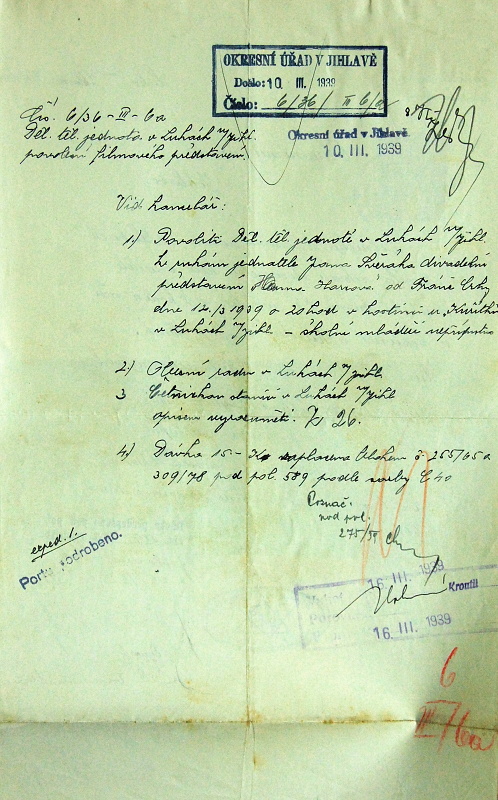 OKRESNÍ ÚŘAD V JIHLAVĚ
Došlo: 10 III. 1939
Číslo: 6/36/ II 6/a
Okresní úřad v Jihlavě
10. III. 1939
Čís. 6/36 - III - 6a
Děl. těl. jednota v Lukách n/Jihl.
povolení filmového představení.
Viď kancelář:
1.) Povoliti Děl. těl. jednotě v Lukách n/Jihl.
k rukám jednatele Jana divadelní
představení od
dne 12./3 1939 o 20 hod v hostinci u
v Lukách n/Jihl. – školní mládeži nepřístupno
2.) Obecní radu v Lukách n/Jihl.
3 Četnickou stanici v Lukách n/Jihl
opisem vyrozuměti. 26.
4.) Dávka 15.- Kč zaplacena č. 255/65 a
309/78 pod pol. 589 podle sazby C 40
Poznač.
pod pol.
275/39
exped. 1.
Portu podrobeno.
16. III. 1939
Kroutil
16. III. 1939
6
III/6a